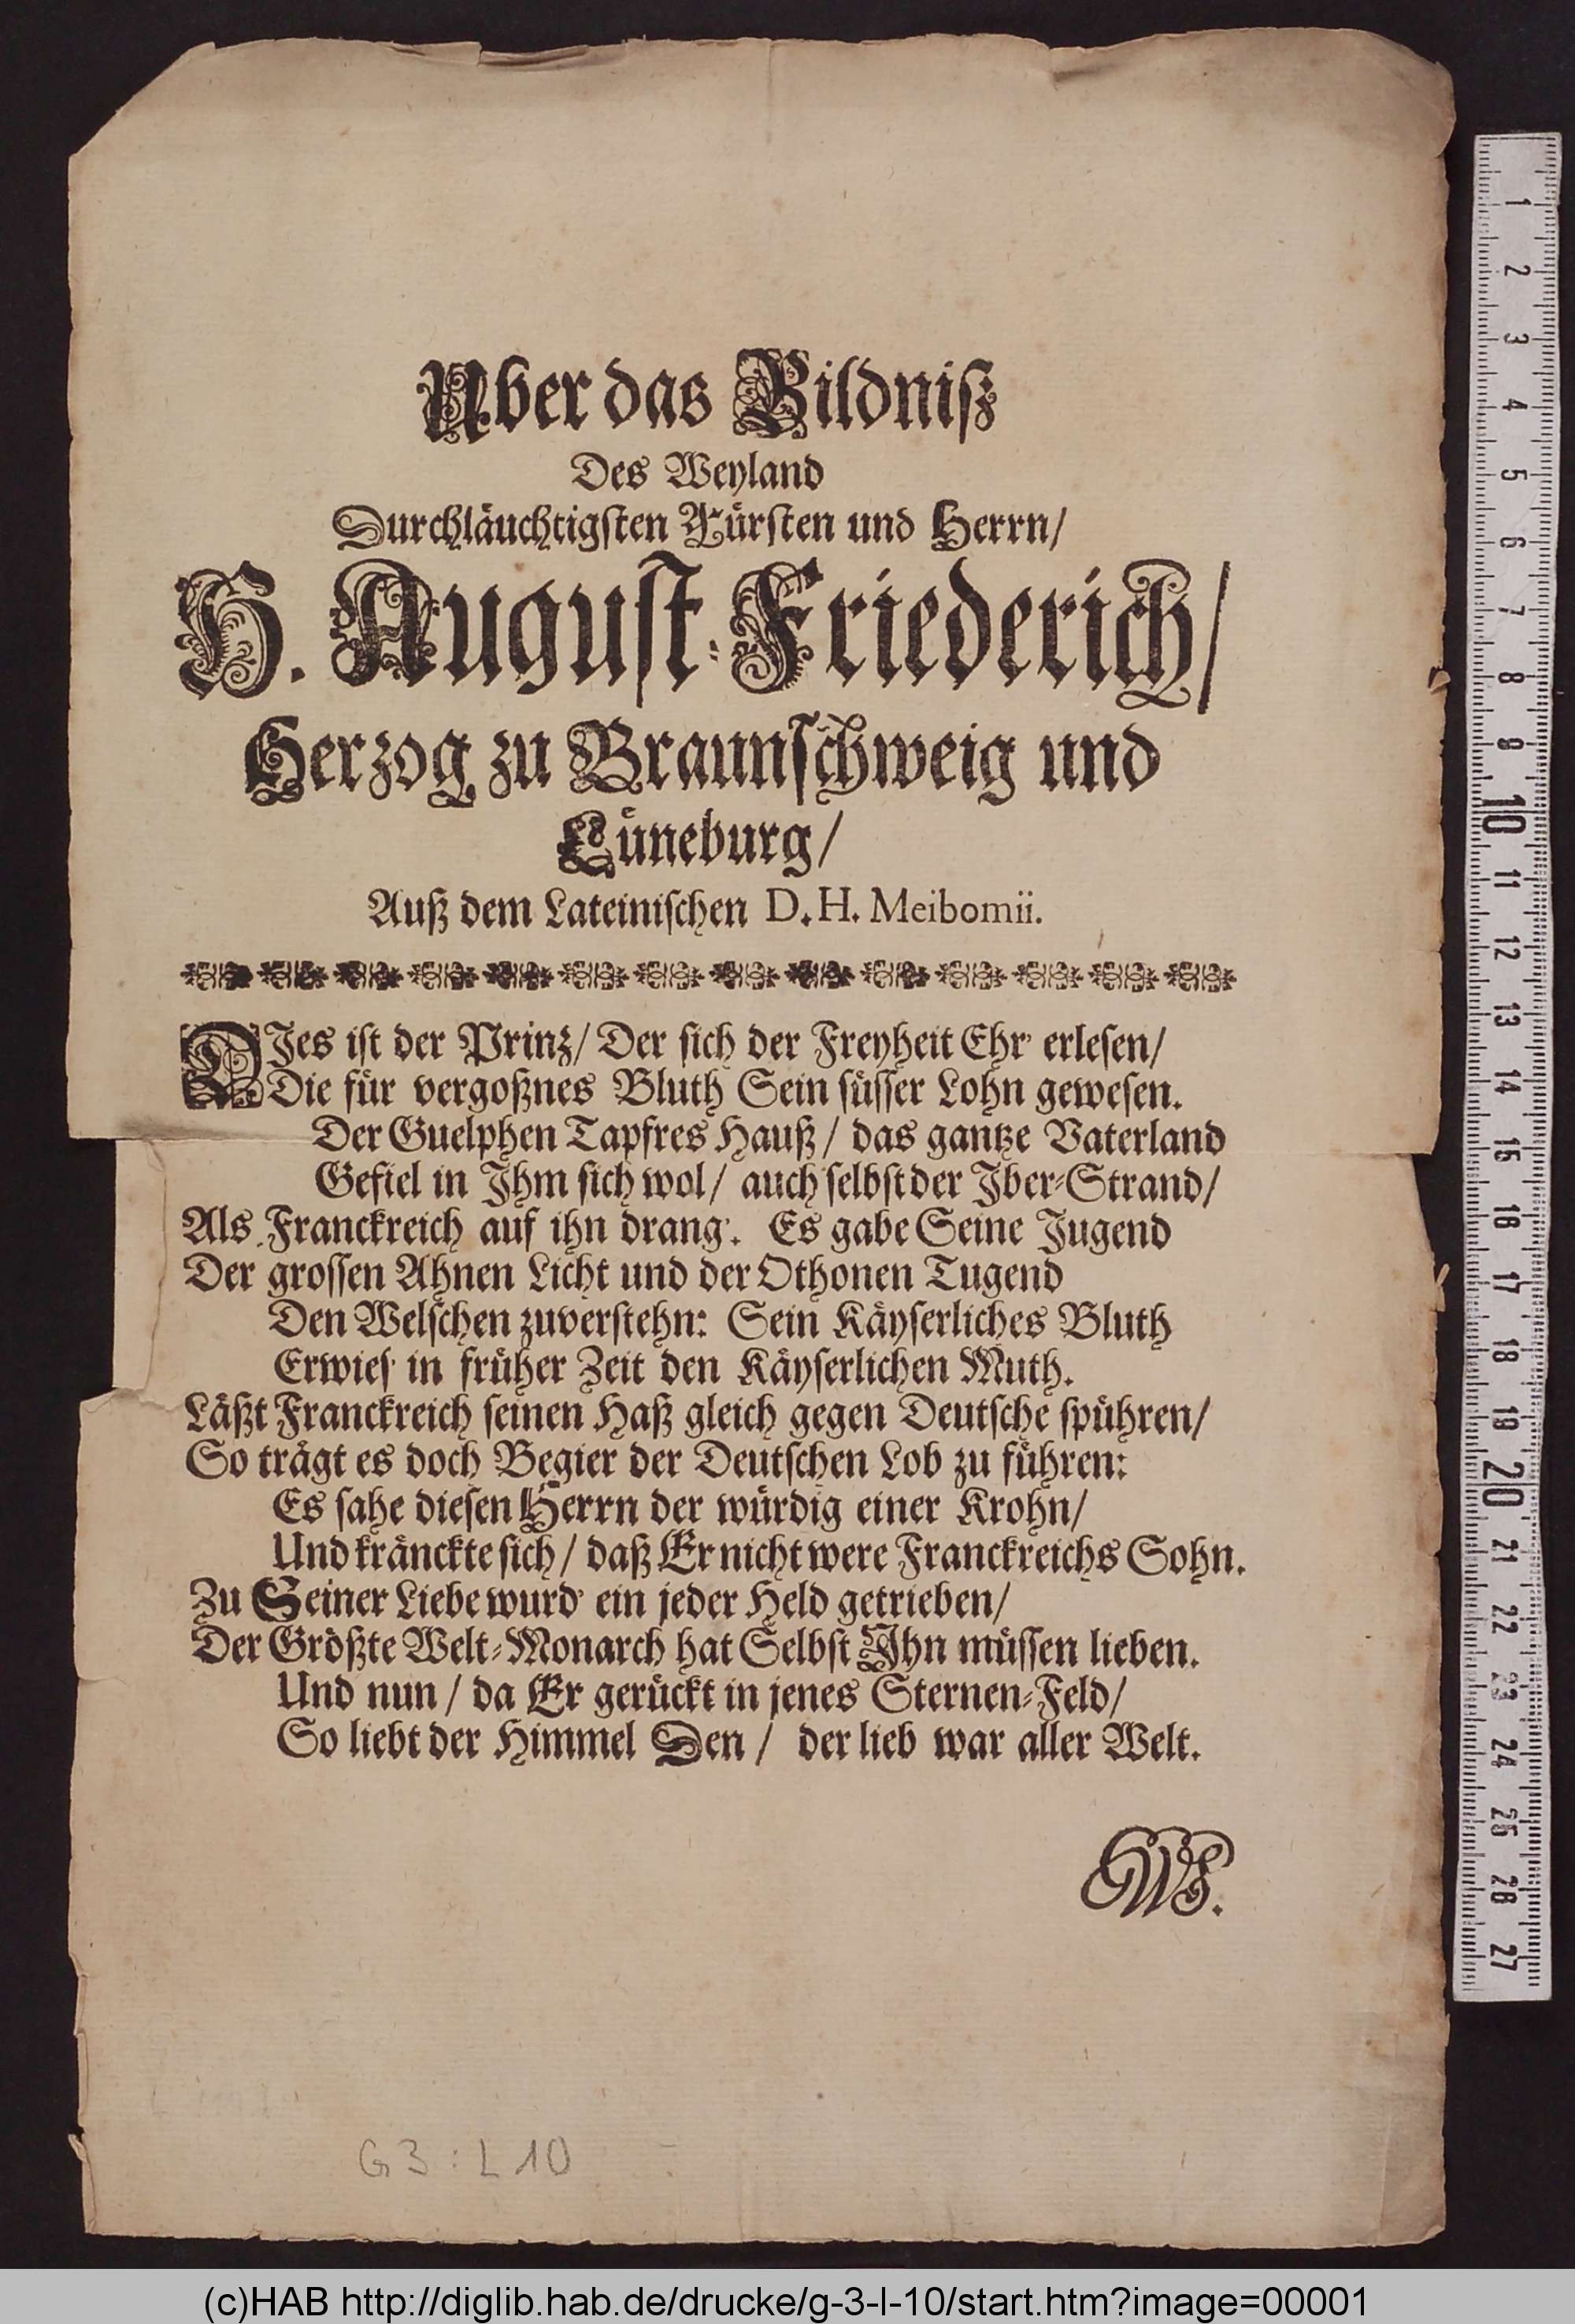 Uber das Bildniß
Des Weyland
Durchläuchtigsten Fürsten und Herrn/
H. August-Friederich/
Herzog zu Braunschweig und
Lüneburg/
Auß dem Lateinischen D. H. Meibomii.
DIes ist der Prinz/ Der sich der Freyheit Ehr' erlesen/
Die für vergoßnes Bluth Sein süsser Lohn gewesen.
Der Guelphen Tapfres Hauß/ das gantze Vaterland
Gefiel in Ihm sich wol/ auch selbst der Iber-Strand/
Als Franckreich auf ihn drang'. Es gabe Seine Jugend
Der grossen Ahnen Licht und der Othonen Tugend
Den Welschen zuverstehn: Sein Käyserliches Bluth
Erwies' in früher Zeit den Käyserlichen Muth.
Läßt Franckreich seinen Haß gleich gegen Deutsche spühren/
So trägt es doch Begier der Deutschen Lob zu führen:
Es sahe diesen Herrn der würdig einer Krohn/
Und kränckte sich/ daß Er nicht were Franckreichs Sohn.
Zu Seiner Liebe wurd' ein jeder Held getrieben/
Der Größte Welt-Monarch hat Selbst Ihn müssen lieben.
Und nun/ da Er gerückt in jenes Sternen-Feld/
So liebt der Himmel Den/ der lieb war aller Welt.
G3:L10
1
2
3
4
5
6
7
8
9
10
11
12
13
14
15
16
17
18
19
20
21
22
23
24
25
26
27
(c)HAB http://diglib.hab.de/drucke/g-3-l-10/start.htm?image=00001